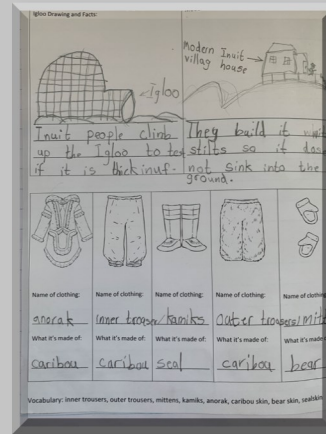 Igloo Drawing and Facts:
Modern Inuit
villag house
Igloo
Inuit people climb
up the Igloo to tes
if it is thick inuf.
They build it
stilts so it dose
not sink into the
ground.
Name of clothing: Name of clothing: Name of clothing: Name of clothing: Name of clothing:
anorak Inner trouser/kamiks Outer troosers/mitt
What it's made of: What it's made of: What it's made of: What it's made of: What it's made of:
caribou caribou seal caribou bear
Vocabulary: inner trousers, outer trousers, mittens, kamiks, anorak, caribou skin, bear skin, sealskin